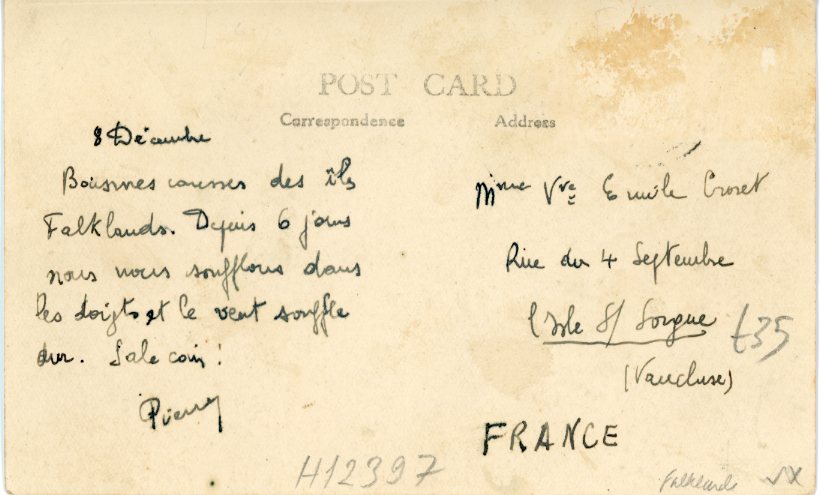 POST CARD
Correspondence
Address
8 Décembre
des îles
Falklands. Depuis 6 jours
nous nous soufflons dans
les doigts et le vent souffle
dur. Sale coin !
Pierre
Mme Vve Emile Crozet
Rue du 4 Septembre
l'Isle S/ Sorgue
(Vaucluse)
FRANCE
£35
H12397
Falklands